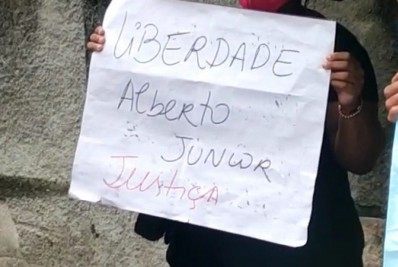 LIBERDADE
Alberto
JUNIOR
Justiça